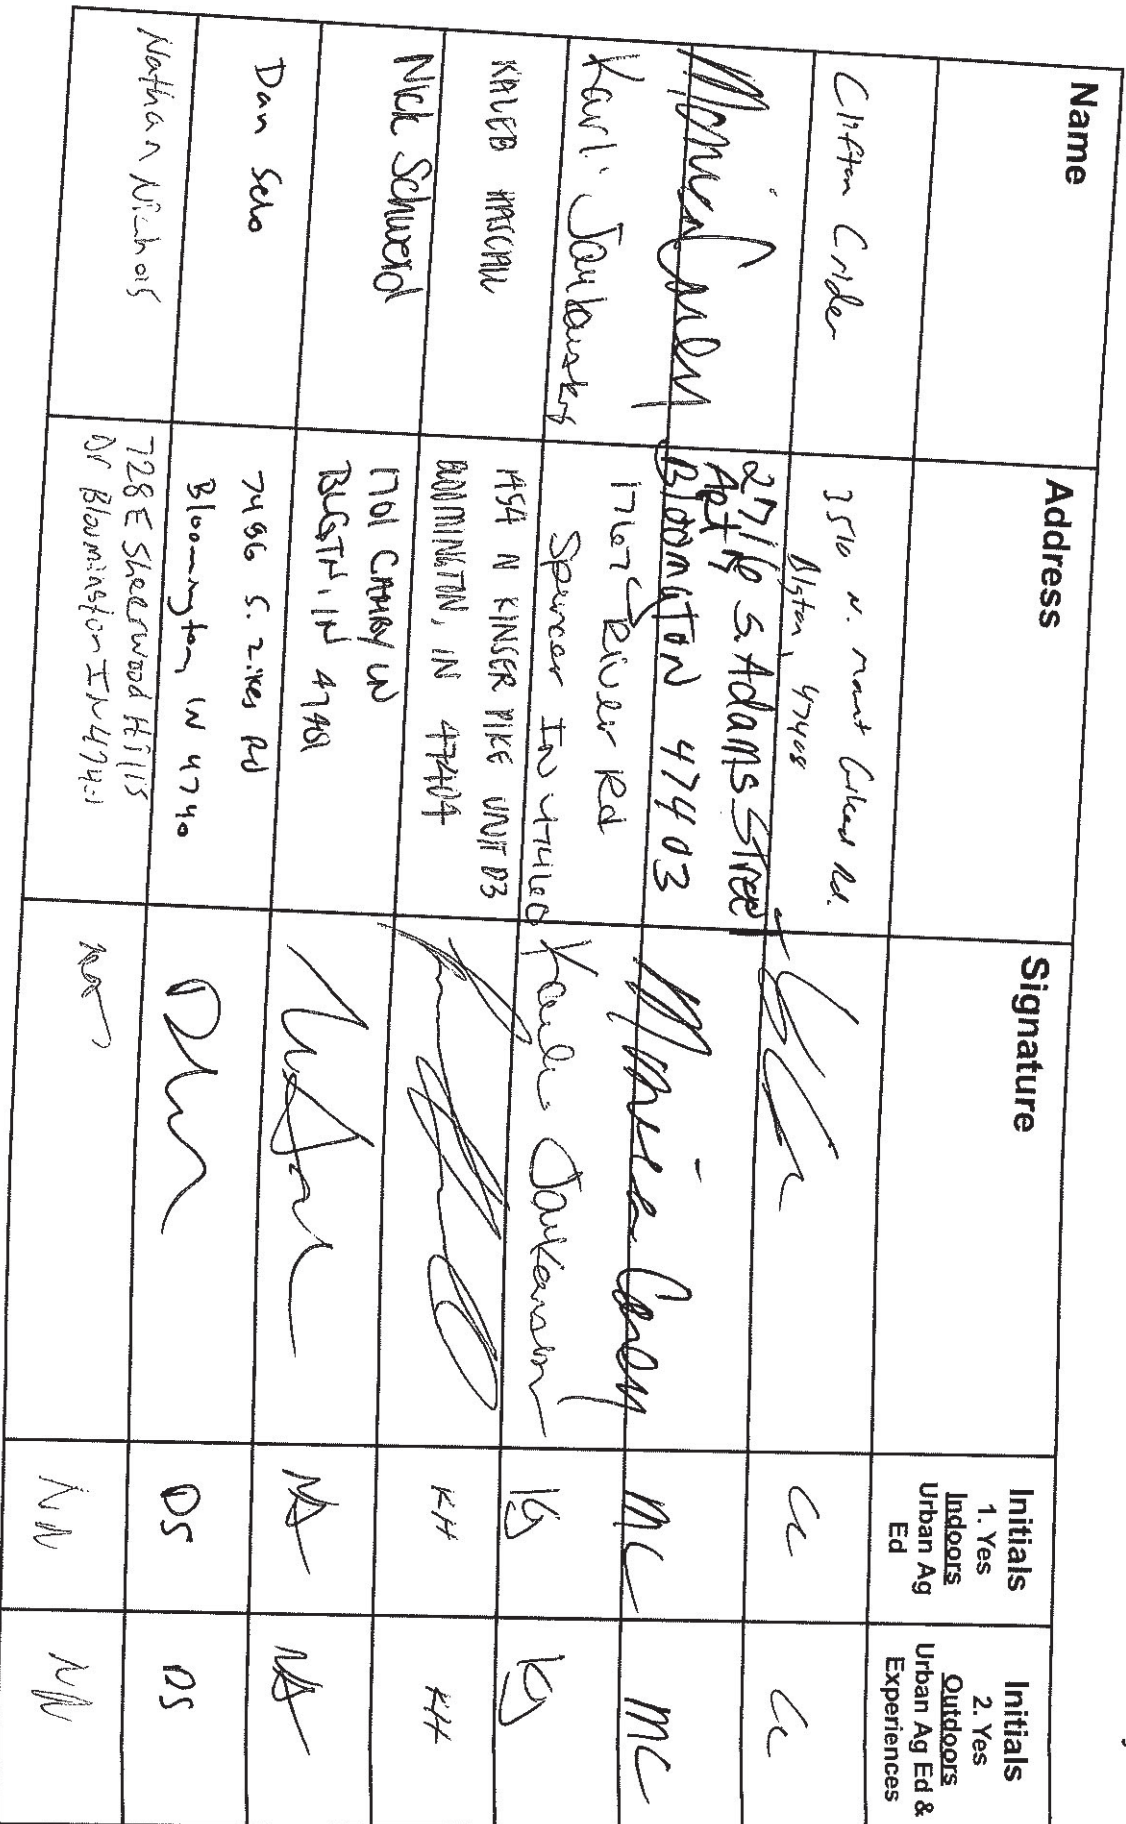 Name
Address
Signature
Initials
1. Yes
Indoors
Urban Ag
Ed
Initials
2. Yes
Outdoors
Urban Ag Ed &
Experiences
Clifton Crider
3510 N. Mount Gilead Rd.
Blgtn, 47408
CC
CC
2716 S. Adams Street
Apt
Bloomington 47403
MC
MC
Karli
1767 River Rd
Spencer IN 47460
Karli
KJ
KJ
KALEB HASCHU
1454 N KINSER PIKE UNIT D3
BLOOMINGTON, IN 47404
KH
KH
Nick Schword
1701 CANBY LN
BLGTN IN 47401
Dan Selo
7486 S. Zikes Rd
Bloomington IN 4740
DS
DS
Nathan Nichols
728 E Sheerwood Hills
Dr Bloomington IN
NN
NN